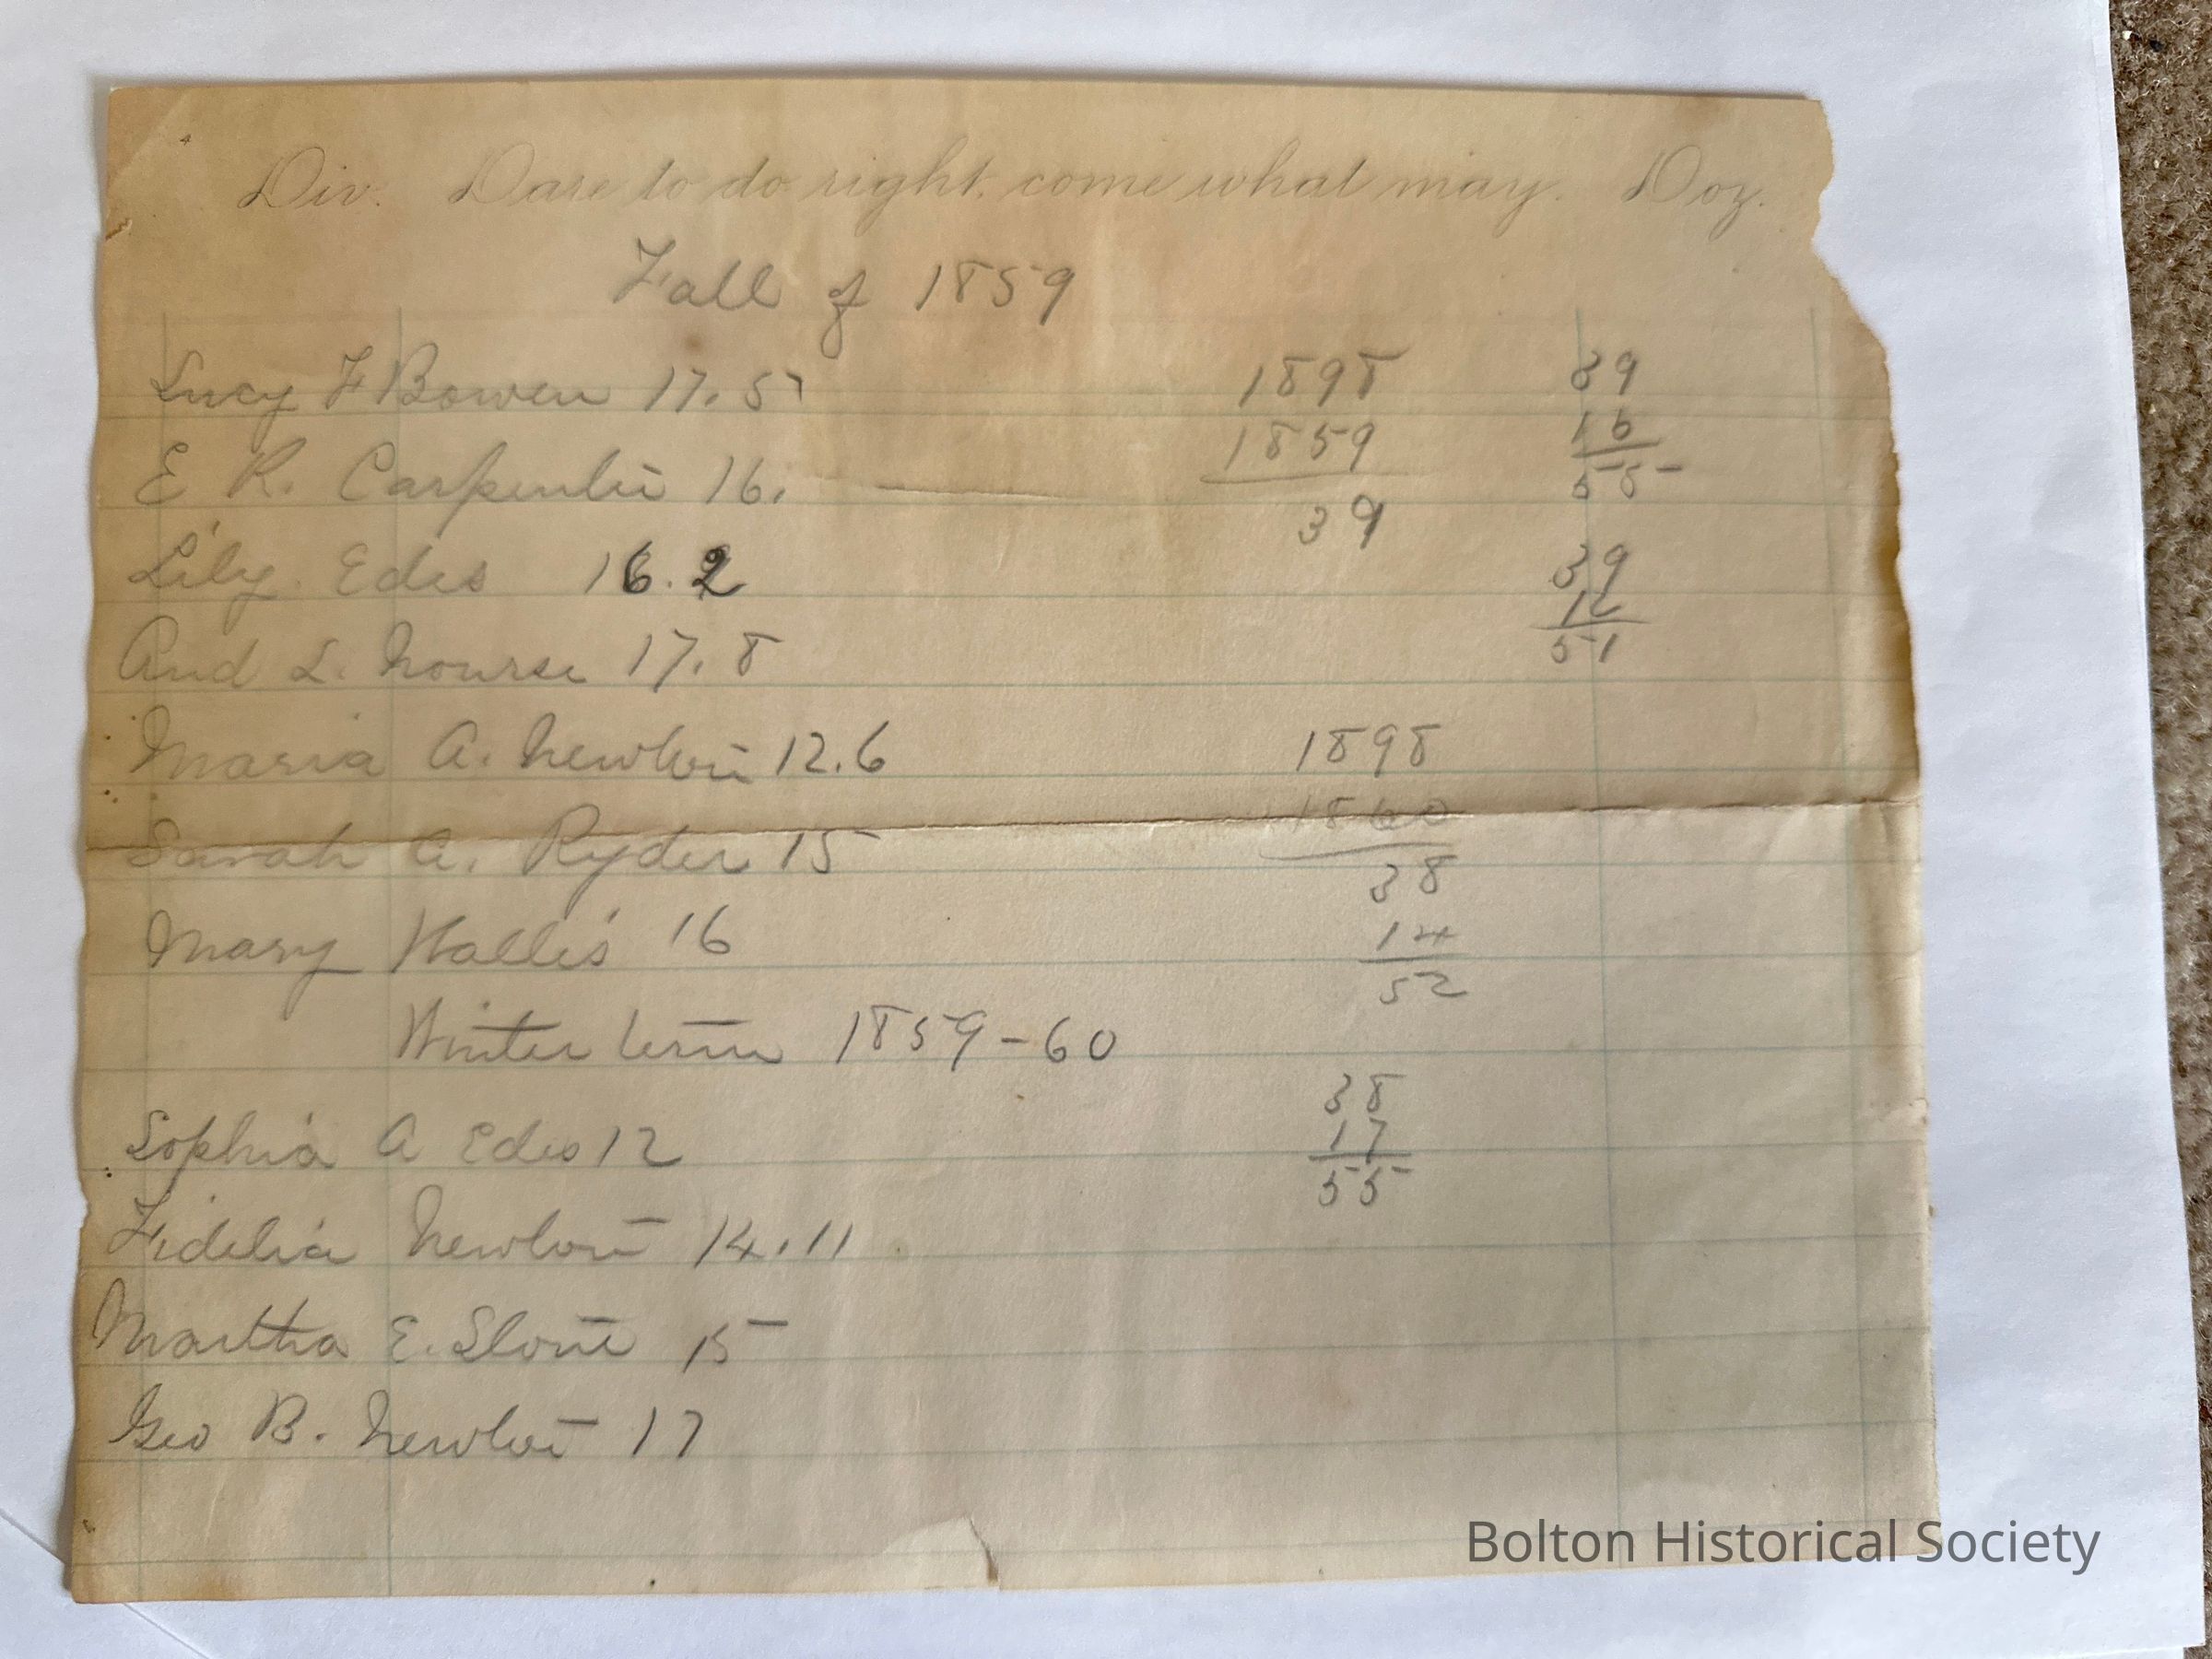 Div. Dare to do right, come what may. Doz.
Fall of 1859
Lucy F Bowen 17.5
E R. Carpenter 16.
Lily. Edes 16.2
And L. Nourse 17.8
Maria A. Newton 12.6
Sarah A. Ryder 15
Mary 16
Winter term 1859-60
Sophia A Edes 12
Fidelia Newton 14.11
Martha E. Stone 15
Geo B. Newton 17
1898
1859
39
1898
1860
38
14
52
38
17
55
39
16
55
39
12
51
Bolton Historical Society